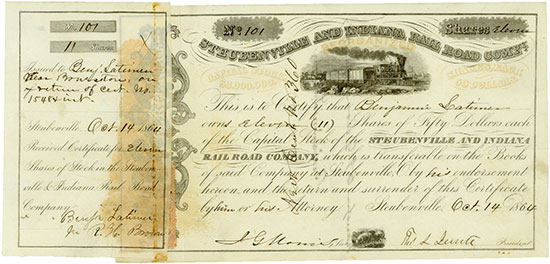 No. 101
11 Shares
Issued to Benj. Latimer
on
return of Cert. No.
154
Steubenville, Oct. 14 1864
Received Certificate for Eleven
Shares of Stock in the Steuben-
ville & Indiana Rail Road
Company.
Benj. Latimer
No. 101
Shares Eleven
STEUBENVILLE AND INDIANA RAIL ROAD COMPY.
CAPITAL STOCK
This is to Certify that Benjamin Latimer
owns Eleven (11) Shares of Fifty Dollars each
of the Capital Stock of the STEUBENVILLE AND INDIANA
RAIL ROAD COMPANY, which is transferable on the Books
of said Company at Steubenville, O. by his endorsement
hereon, and the return and surrender of this Certificate
by him or his Attorney
Steubenville, Oct. 14 1864
President